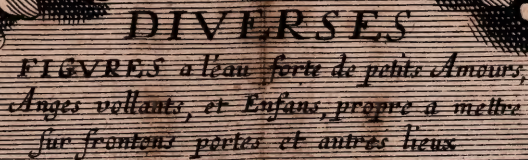 DIVERSES
FIGVRES a l'eau forte de petits Amours,
Anges vollants, et Enfans, propre a mettre
sur frontons portes et autres lieux